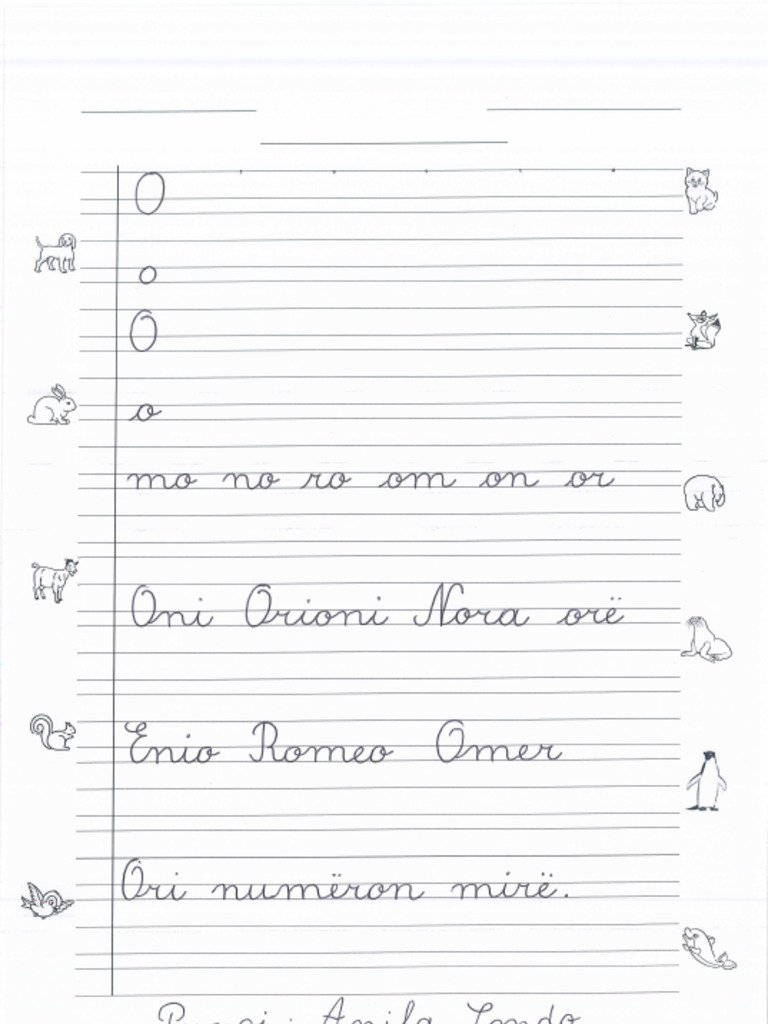 O
o
O
o
mo no ro om on or
Oni Orioni Nora orë
Enio Romeo Omer
Ori numëron mirë.